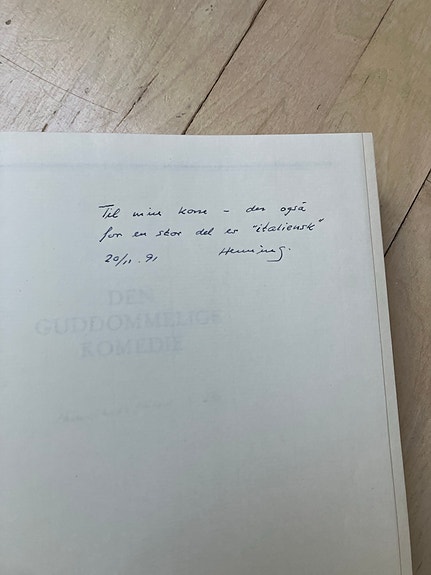 Til min kone – der også
for en stor del er "italiensk"
20/11.91 Henning.
DEN
GUDDOMMELIGE
KOMEDIE